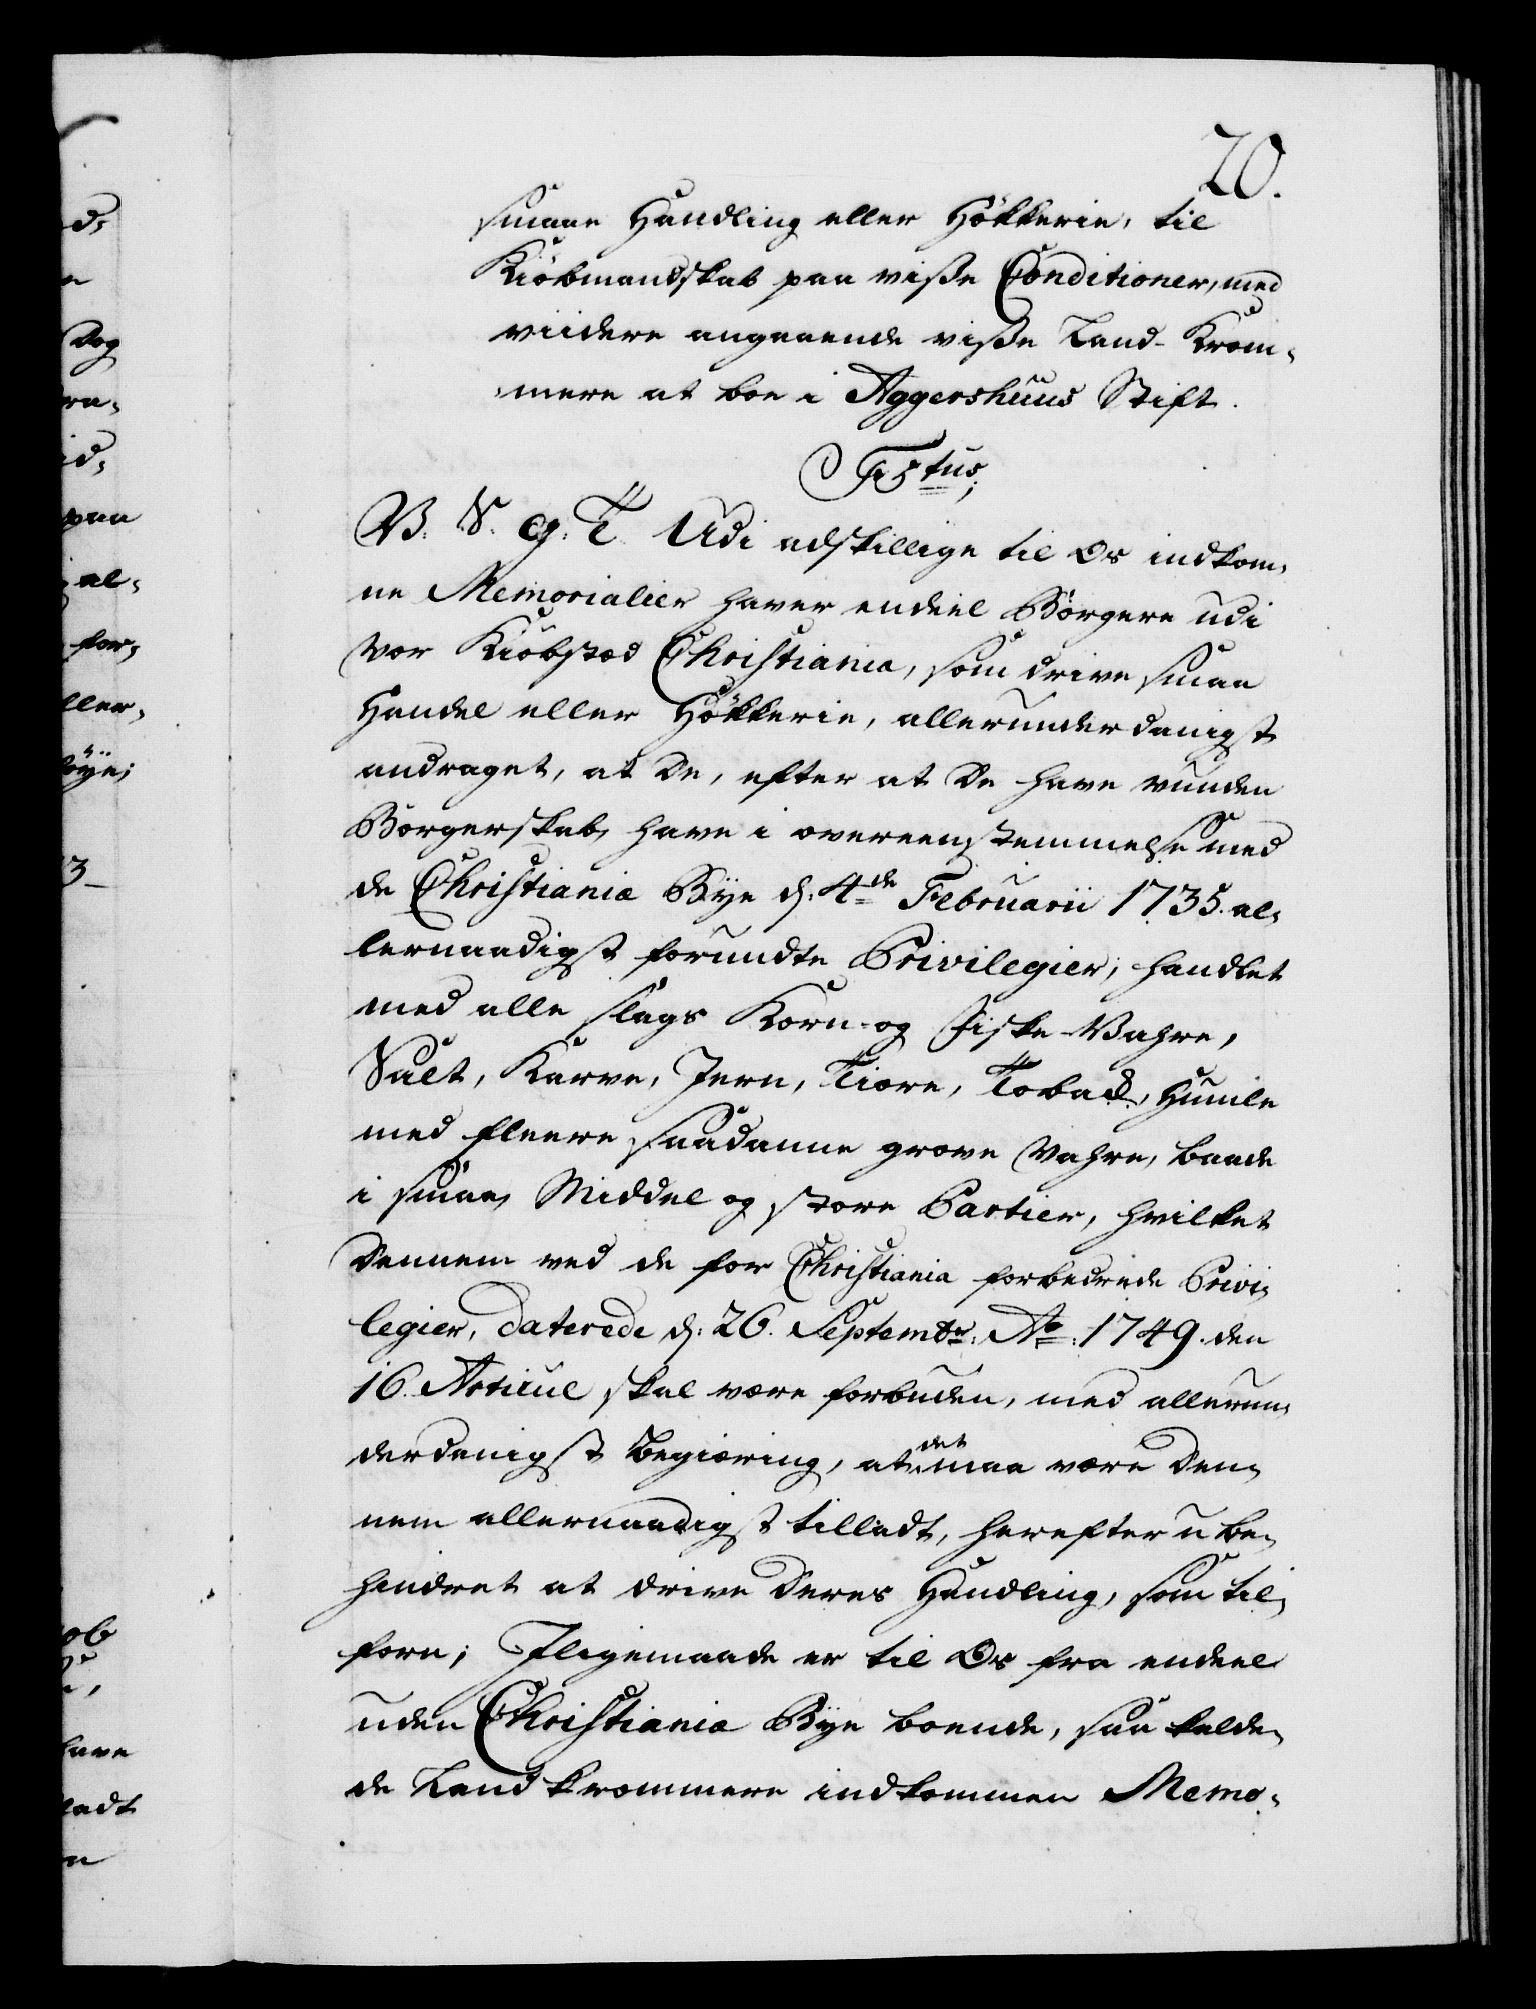 20.
smaae Handling eller Hökkerie, til
Kiöbmandskab paa visse Conditioner, med
viidere angaaende visse Land-Kræm-
mere at boe i Aggershuus Stift.
F 5tus,
V. S. G. T. Udi adskillige til Os indkom-
ne Memorialier haver endeel Börgere udi
vor Kiöbstæd Christiania, som drive smaa
Handel eller Hökkerie, allerunderdanigst
andraget, at De, efter at De have vunden
Borgerskab, have i overeenstemmelse med
de Christiania Bye d: 4de Februarii 1735. al-
lernaadigst forundte Privilegier, handlet
med alle slags Korn- og Fiske-Vahre,
Salt, Karve, Jern, Tiære, Toback, Humle
med fleere saadanne grove Vahre, baade
i smaae, Middel og store Partier, hvilket
Dennem ved de for Christiania forbedrede Privi-
legier, daterede d: 26. Septembr: Ao: 1749. den
16. Articul skal være forbuden, med allerun-
derdanigst Begiæring, at det maa være Den-
nem allernaadigst tilladt, herefter ube-
hindret at drive Deres Handling, som til-
forn; Iligemaade er til Os fra endeel
uden Christiania Bye boende, saa kalde-
de Land Kræmmere indkommen Memo-
d,
n
Dog
ra-
id,
paa
al-
for-
ller-
öye;
3-
ob
have
ladt
n